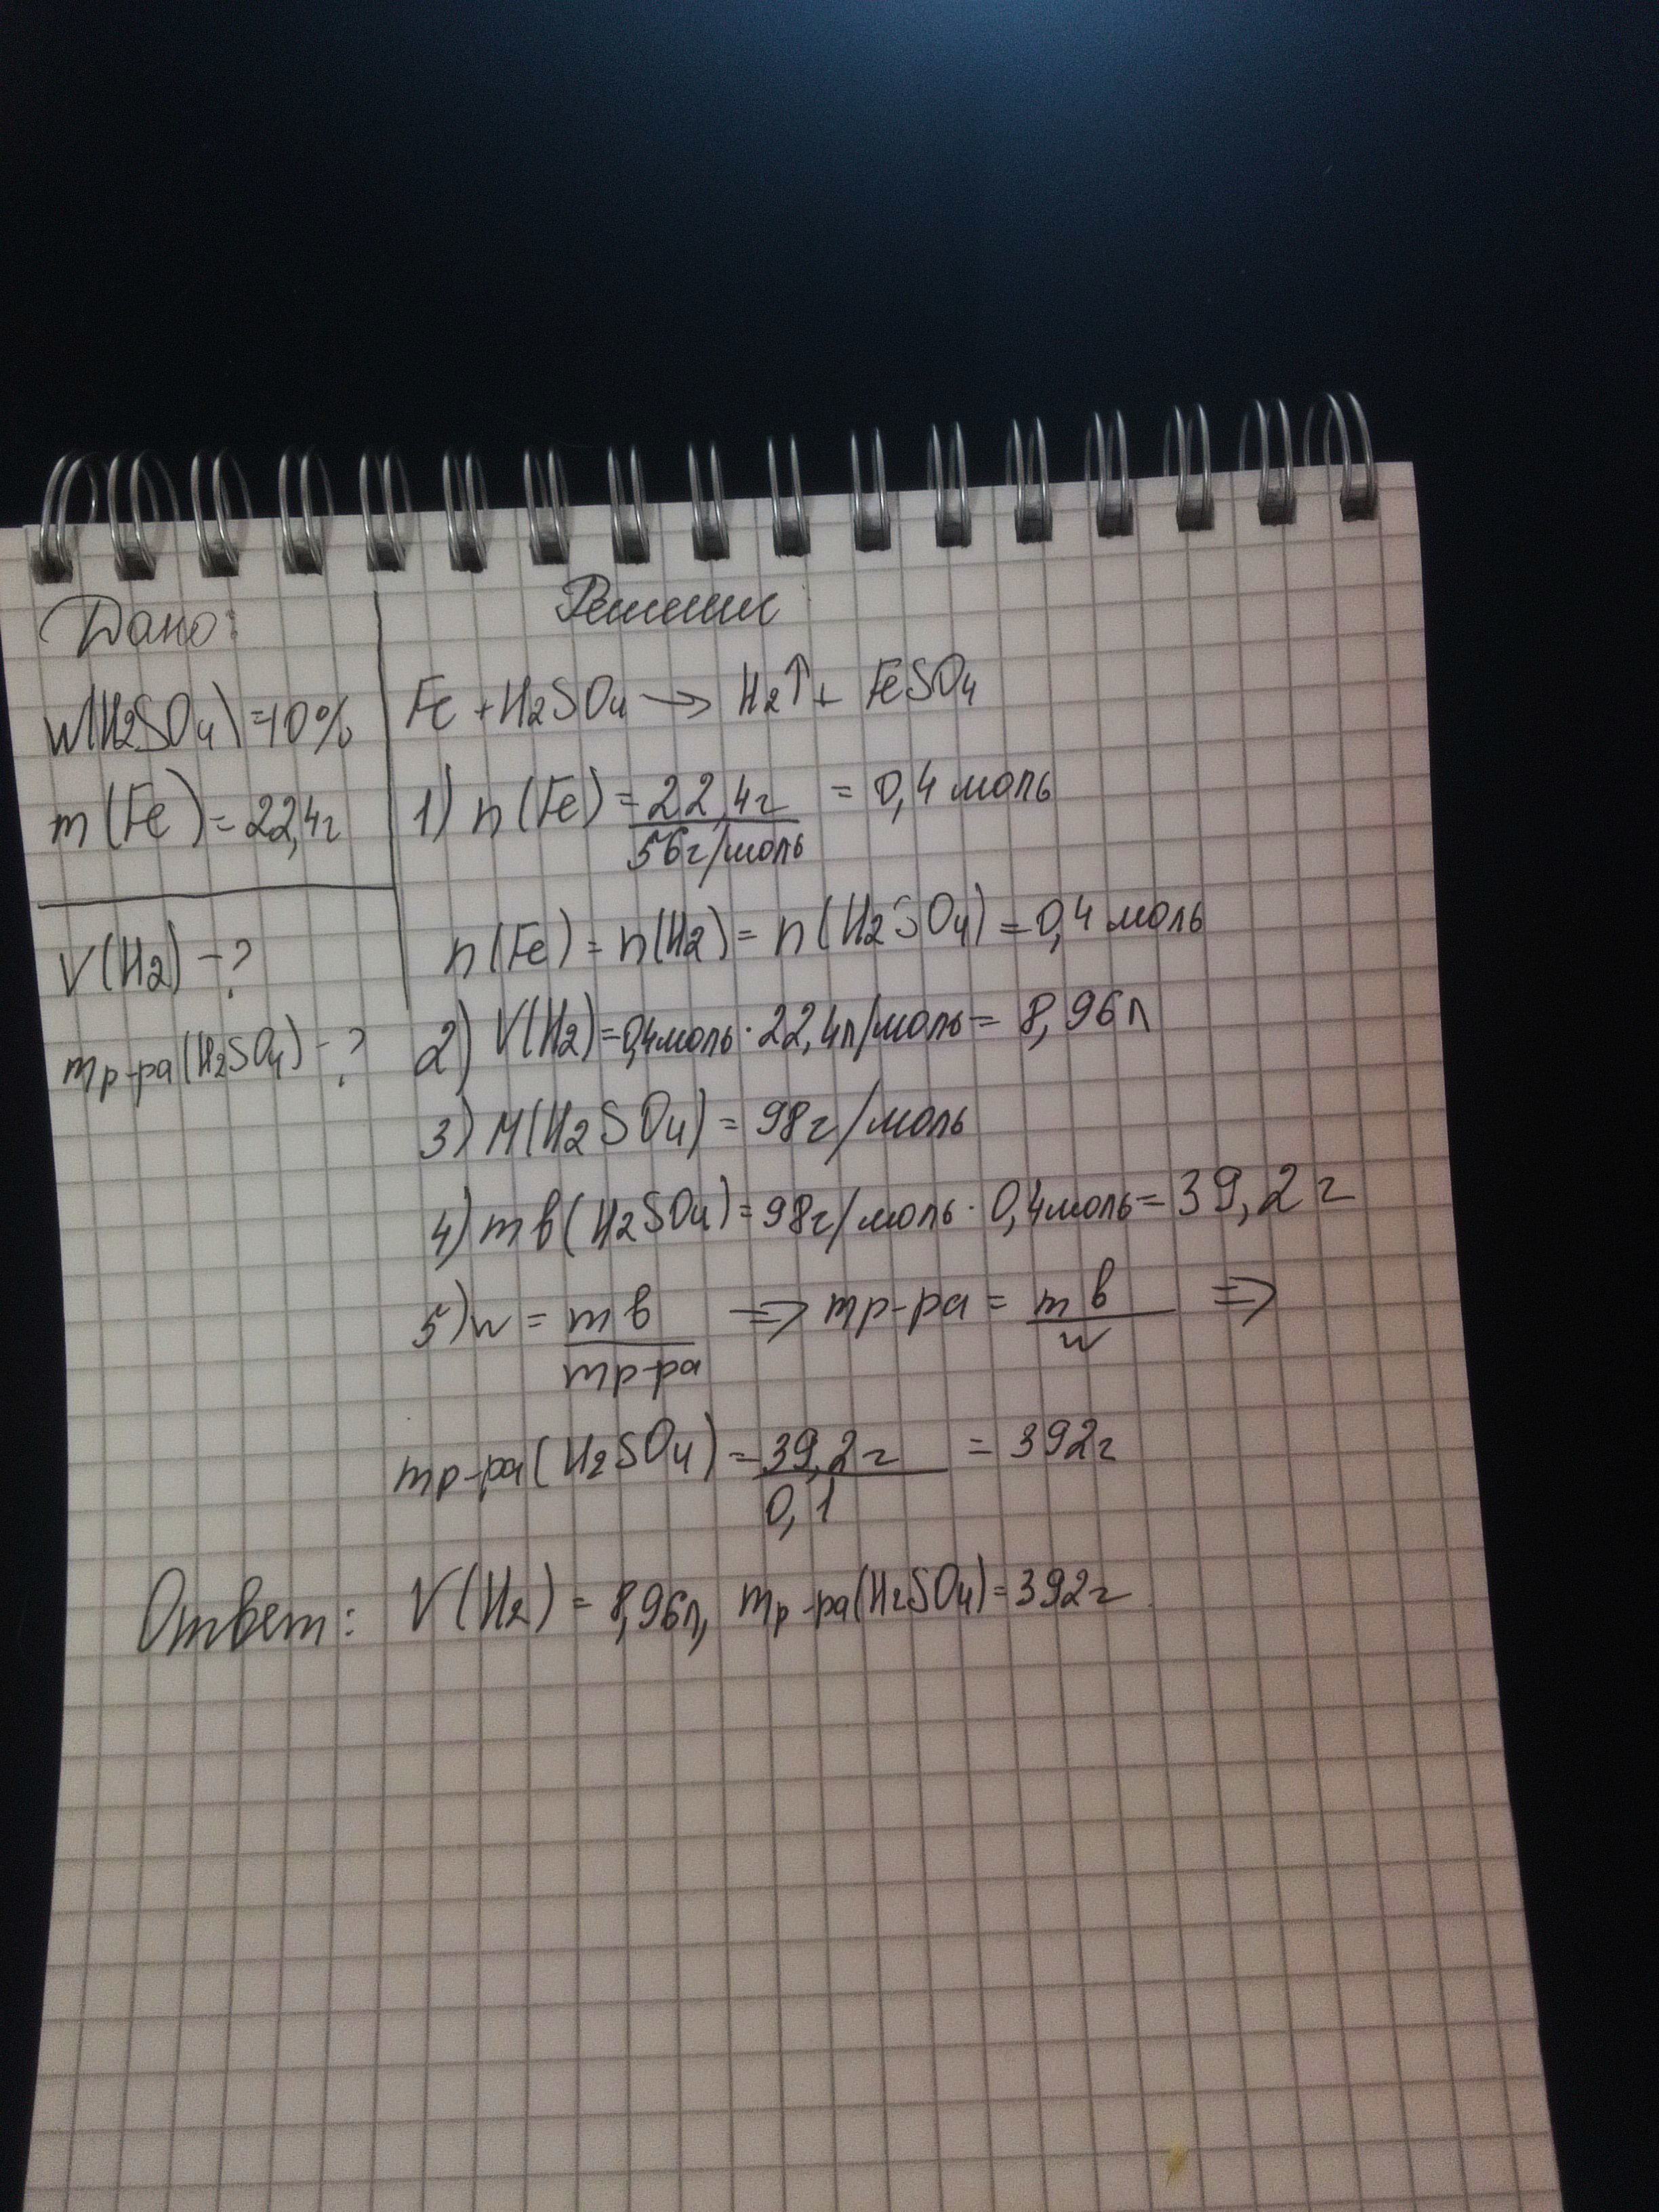 Дано:
W(H2SO4)=10%
m(Fe)=22,4г
V(H2)-?
mр-ра(H2SO4)-?
Решение
Fe+H2SO4→H2↑+FeSO4
1) n(Fe)=22,4г/56г/моль=0,4моль
n(Fe)=n(H2)=n(H2SO4)=0,4моль
2) V(H2)=0,4моль·22,4л/моль=8,96л
3) M(H2SO4)=98г/моль
4) mв(H2SO4)=98г/моль·0,4моль=39,2г
5) w=mв/mр-ра ⇒ mр-ра=mв/w ⇒
mр-ра(H2SO4)=39,2г/0,1=392г
Ответ: V(H2)=8,96л, mр-ра(H2SO4)=392г